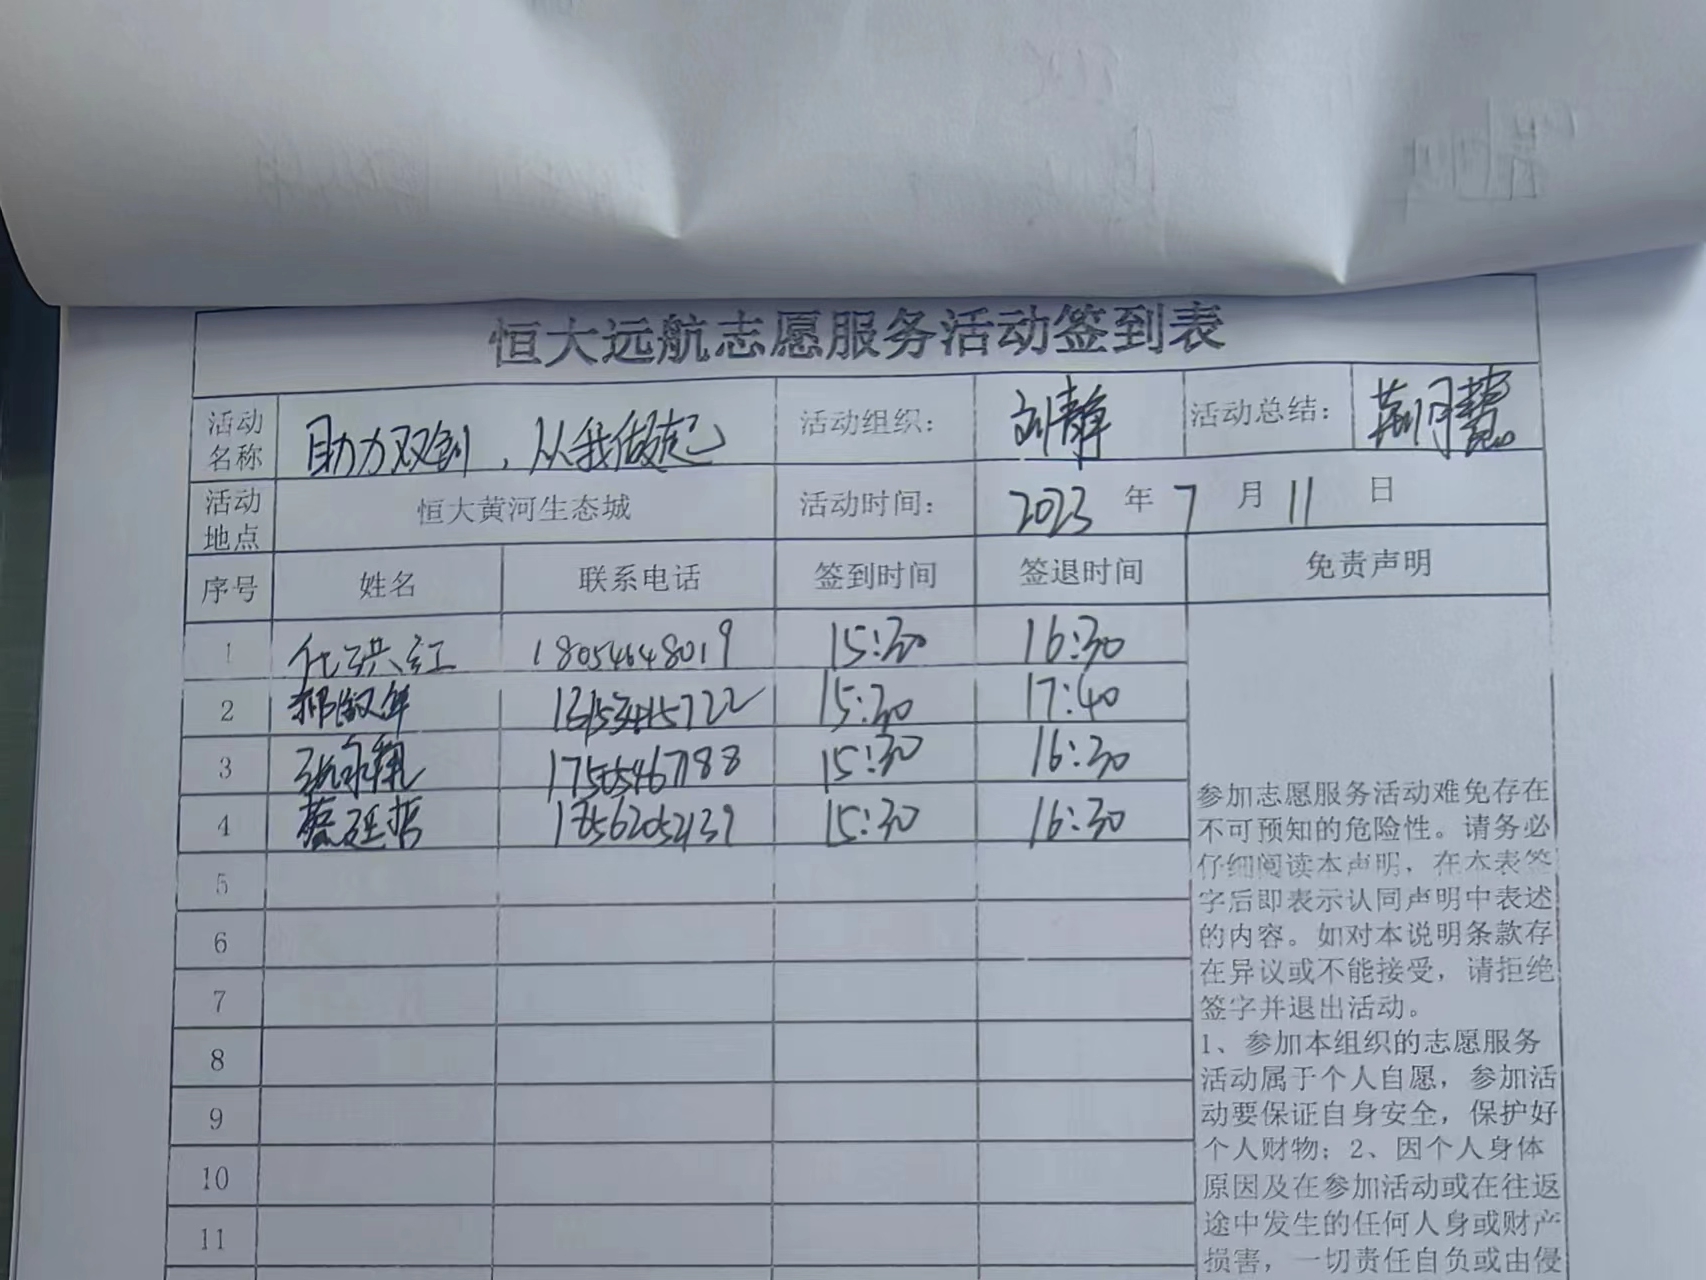 恒大远航志愿服务活动签到表
活动名称 助力双创，从我做起 活动组织： 刘静 活动总结： 荆月慧
活动地点 恒大黄河生态城 活动时间： 2023 年 7 月 11 日
序号 姓名 联系电话 签到时间 签退时间 免责声明
1 代洪红 18054648019 15:30 16:30
2 15:30 17:40
3 张永翔 17505467188 15:30 16:30
4 蔡廷哲 18562052139 15:30 16:30
5
6
7
8
9
10
11
参加志愿服务活动难免存在
不可预知的危险性。请务必
仔细阅读本声明，在本表签
字后即表示认同声明中表述
的内容。如对本说明条款存
在异议或不能接受，请拒绝
签字并退出活动。
1、参加本组织的志愿服务
活动属于个人自愿，参加活
动要保证自身安全，保护好
个人财物；2、因个人身体
原因及在参加活动或在往返
途中发生的任何人身或财产
损害，一切责任自负或由侵